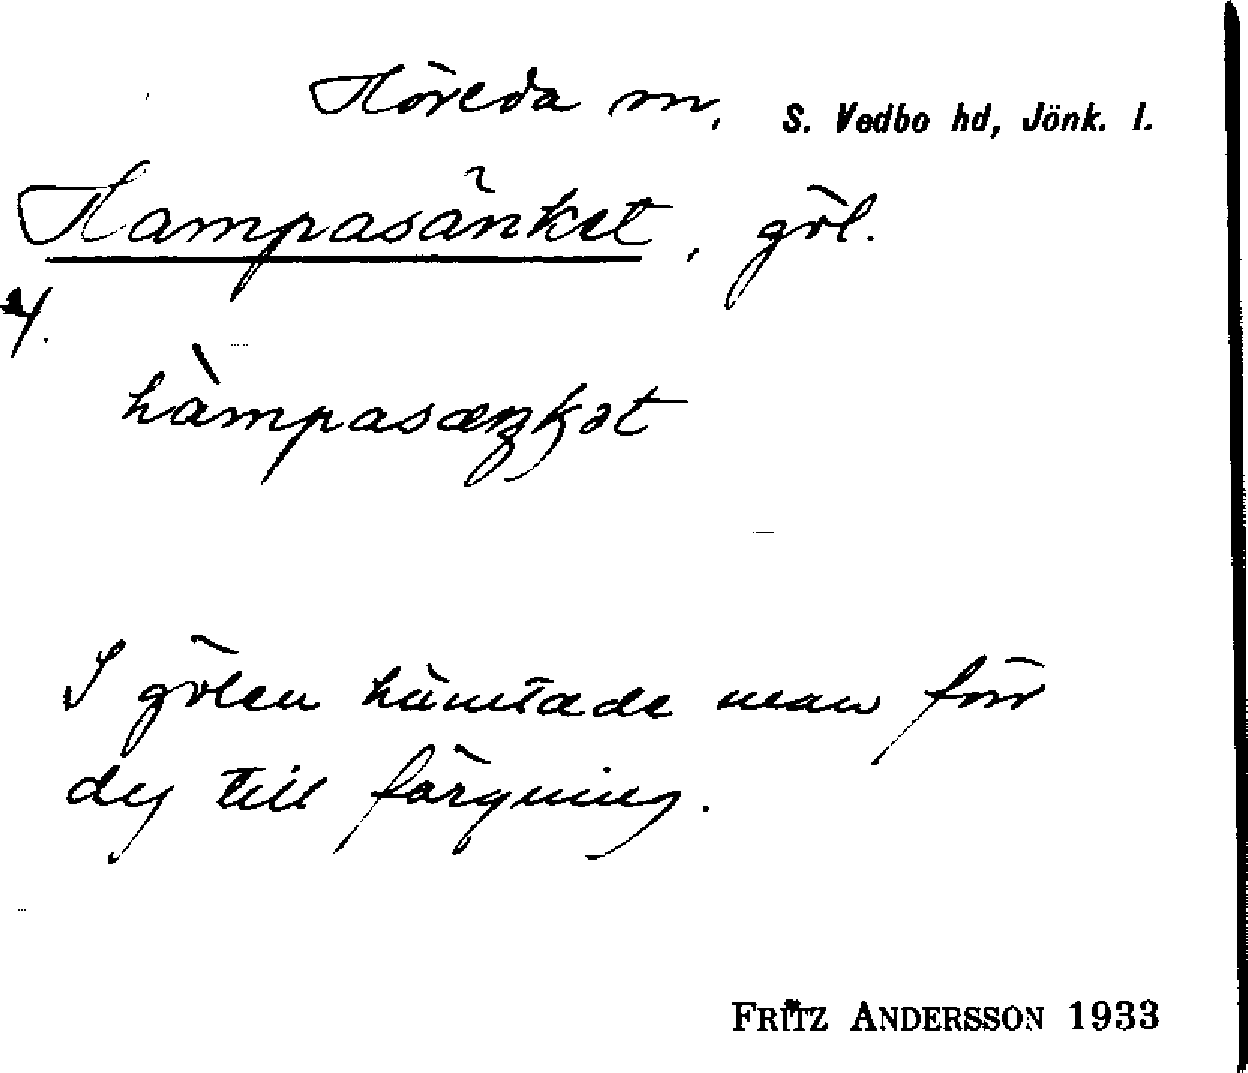 Höreda sn, S. Vedbo hd, Jönk. l.
Hampasänket, göl.
4.
hàmpasæŋkət
I gölen hämtade man förr
dy till färgning.
FRITZ ANDERSSON 1933